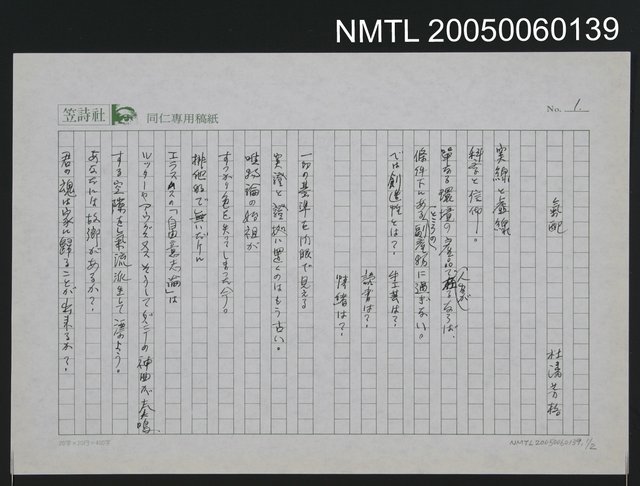 NMTL 20050060139
笠詩社 同仁専用稿紙
No. 1.
氣配
杜潘芳格
実線と虚線
科学と信仰。
単なる環境の産品で人間がなるならば、
條件下にあるところの副産物に過ぎない。
では創造性とは? 生甲斐は?
読書は?
情緒は?
一切の基準を肉眼で見える
実證と證拠に置くのはもう古い。
唯物論の始祖が
すっかり色を失ってしまった今。
排他的で無いだけ
エラスムスの「自由意志論」は
ルッターのアウグスチヌス そうしてダンテの神曲が
する空隙を氣流派生して
あなたには故郷があるか?
君の魂は家に歸ることが出来るか?
20字×20行=400字
NMTL20050060139, 1/2